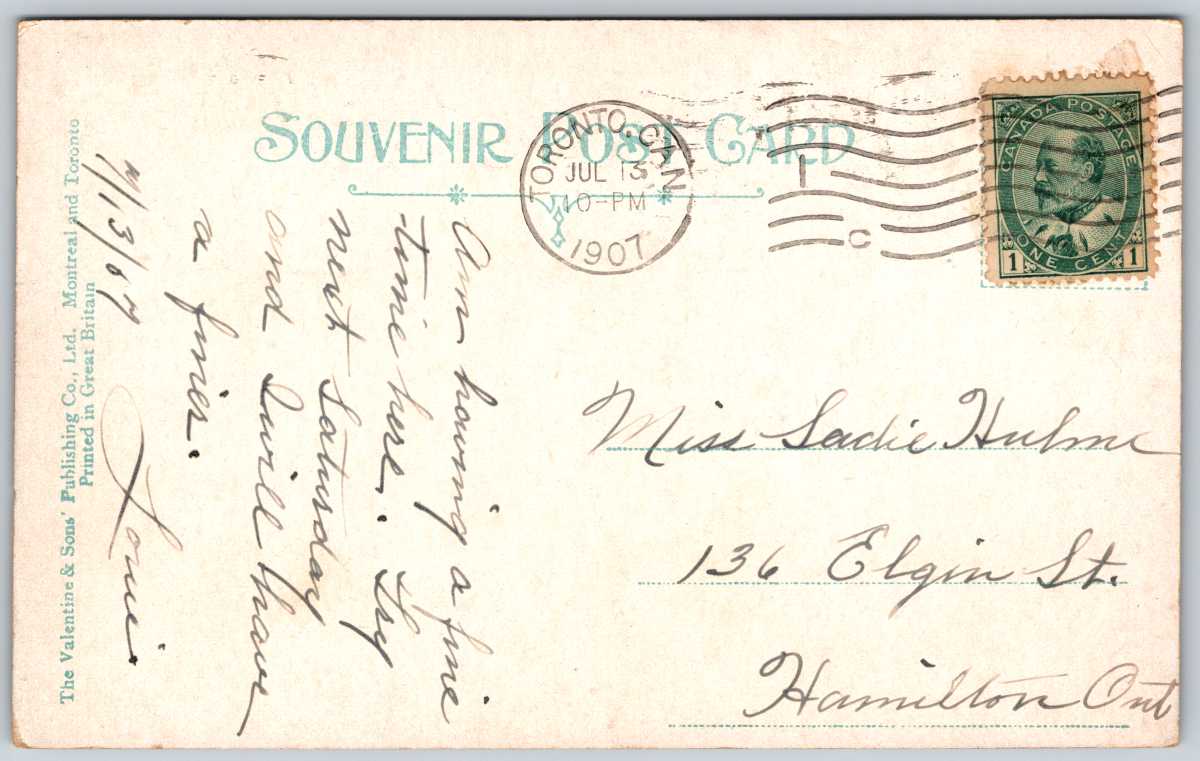 SOUVENIR POST CARD
TORONTO. CAN
JUL 13
10-PM
1907
1
C
CANADA POSTAGE
ONE CENT
1 1
Am having a fine
time here. Try
next Saturday
and I will have
a finer.
7/13/07 Louie.
Miss Sadie Hulme
136 Elgin St.
Hamilton Ont
The Valentine & Sons' Publishing Co., Ltd. Montreal and Toronto
Printed in Great Britain